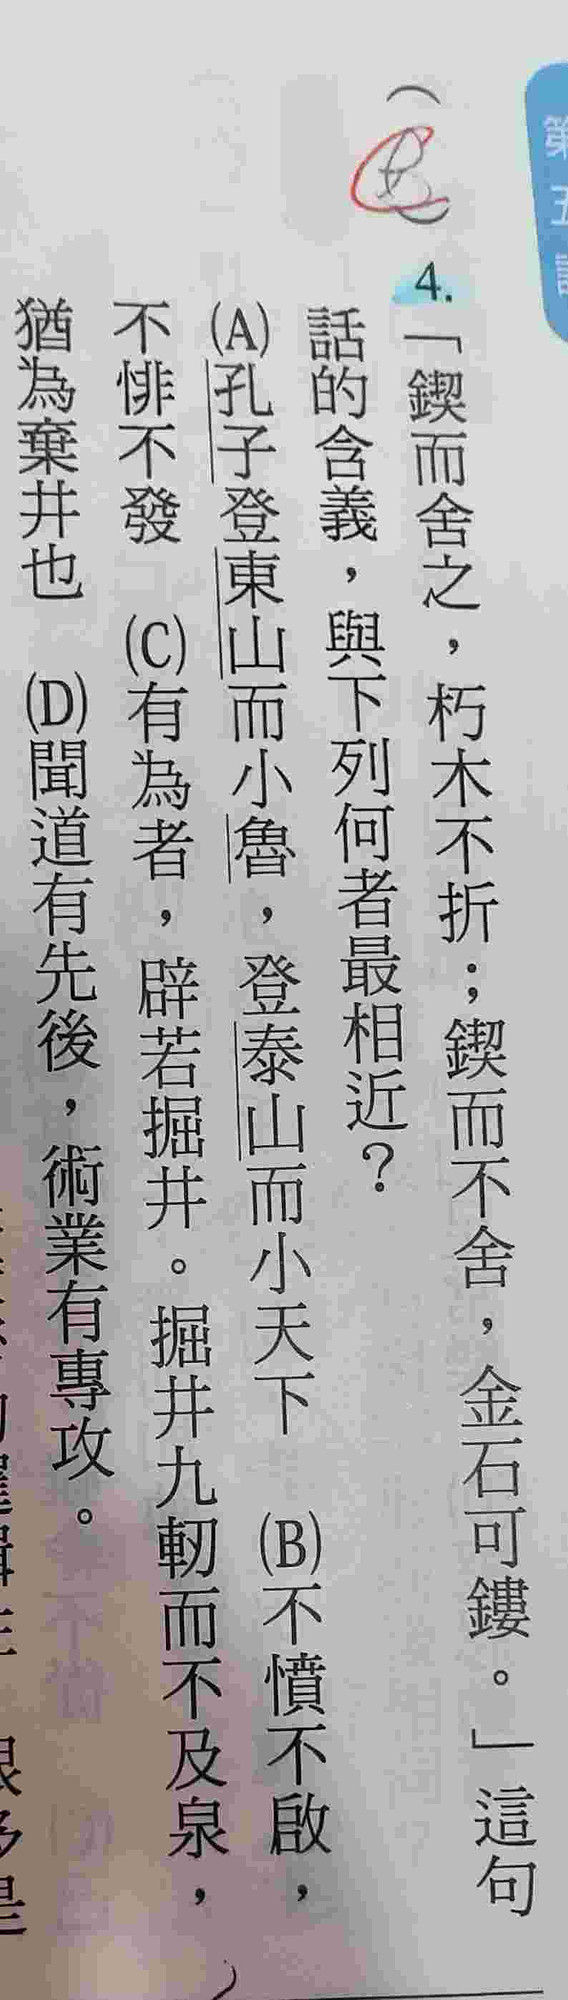 第五課
(B)
4.「鍥而舍之，朽木不折；鍥而不舍，金石可鏤。」這句
話的含義，與下列何者最相近？
(A)孔子登東山而小魯，登泰山而小天下　(B)不憤不啟，
不悱不發　(C)有為者，辟若掘井。掘井九軔而不及泉，
猶為棄井也　(D)聞道有先後，術業有專攻。